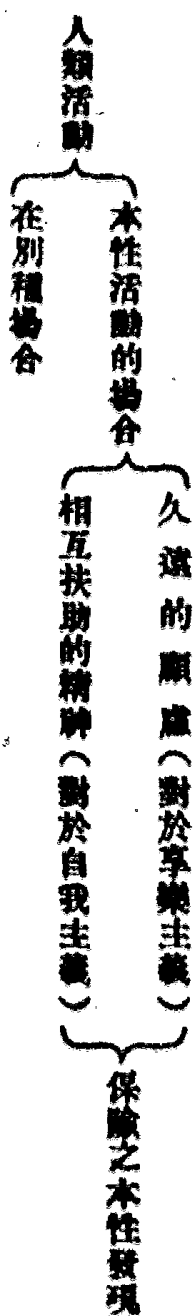 人類活動
本性活動的場合
在別種場合
久遠的顧慮（對於享樂主義）
相互扶助的精神（對於自我主義）
保險之本性發現